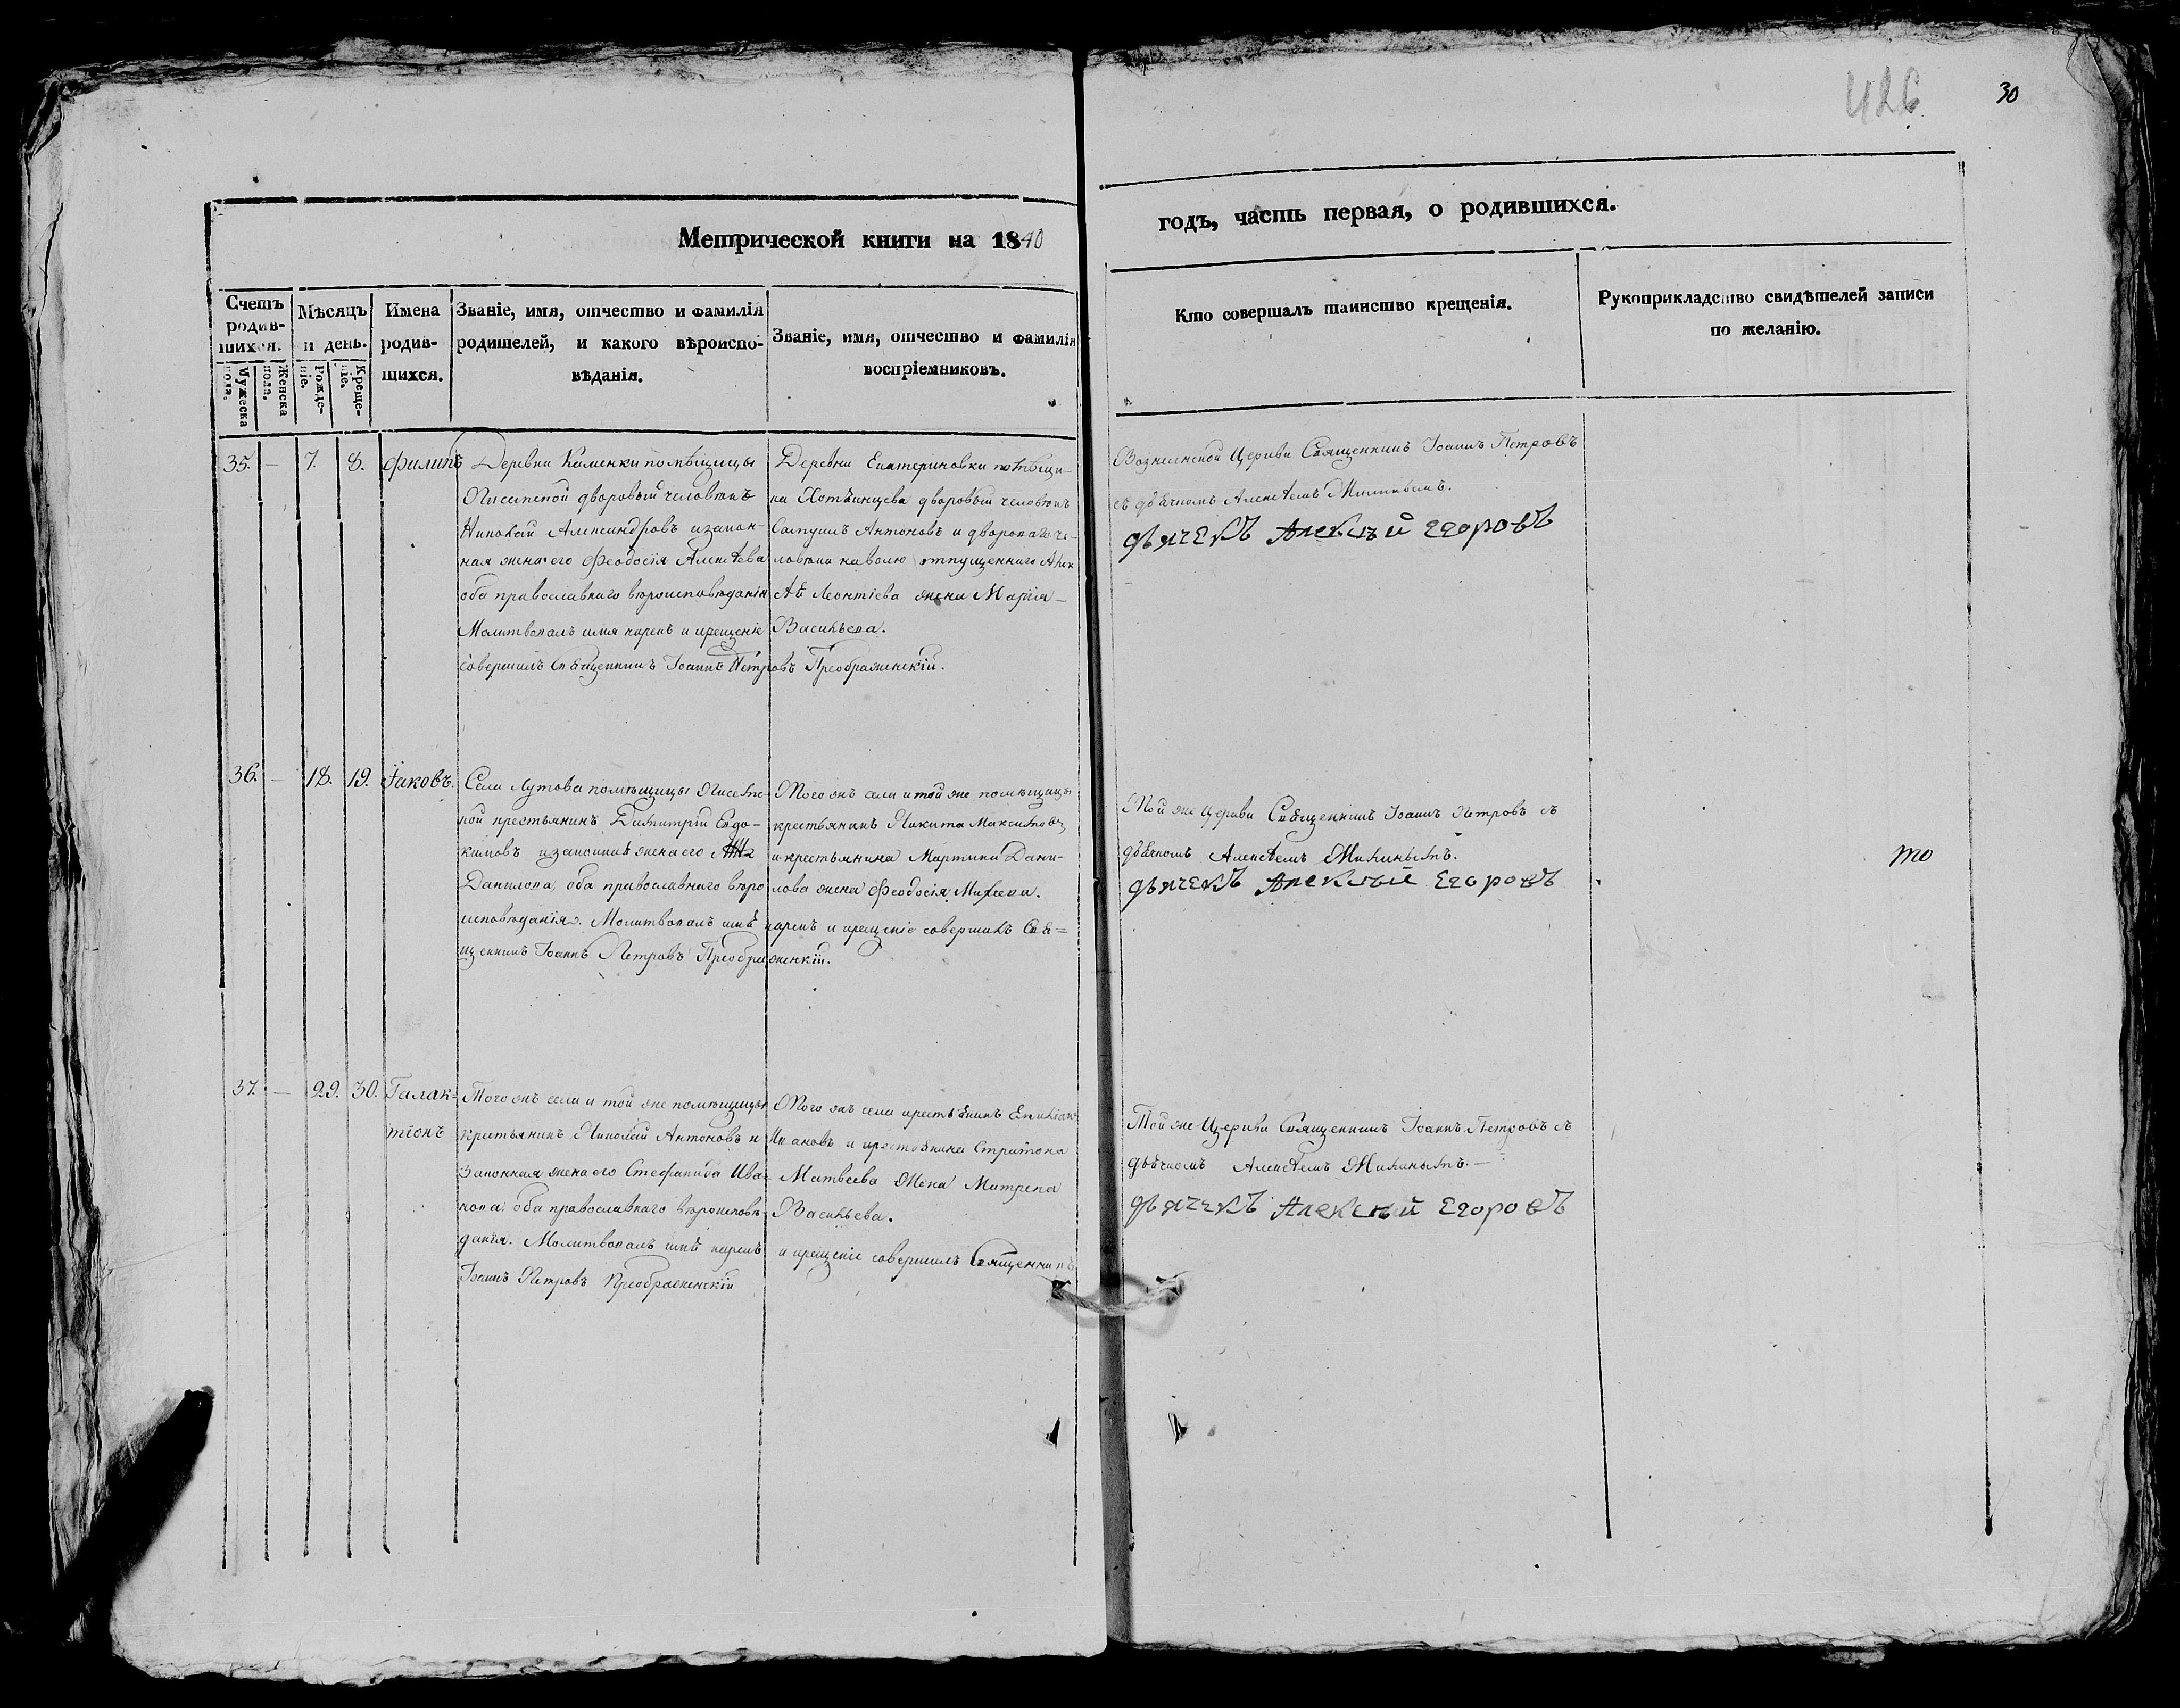 426
30
Метрической книги на 1840
годъ, часть первая, о родившихся.
Счетъ родив-шихся.
Мужеска пола.
Женска пола.
Мѣсяцъ и день.
Рожде-ніе.
Креще-ніе.
Имена родив-шихся.
Званіе, имя, отчество и фамилія
родителей, и какого вѣроиспо-
вѣданія.
Званіе, имя, отчество и фамилія
воспріемниковъ.
Кто совершалъ таинство крещенія.
Рукоприкладство свидѣтелей записи
по желанію.
35. — 7. 8. Филипъ
Деревни Каменки помѣщицы
дворовый человѣкъ
Николай Александровъ и закон-
ная жена его Феодосія Алексѣева
оба православнаго вѣроисповѣданія
Молитвовалъ имя нарекъ и крещеніе
совершилъ Священникъ Іоаннъ Петровъ Преображенскій.
Деревни Екатериновки помѣщи-
ка дворовый человѣкъ
Самуилъ Антоновъ и дворового че-
ловѣка на волю отпущеннаго Алек
сѣя Леонтіева жена Марія
Васильева.
Вознесенской Церкви Священникъ Іоаннъ Петровъ
съ дьячкомъ Алексѣемъ
дьячекъ Алексѣй Егоровъ
36. — 18. 19. Іаковъ.
Села Лутова помѣщицы
кой крестьянинъ Димитрій Евдо-
кимовъ и законная жена его
Данилова, оба православнаго вѣро
исповѣданія. Молитвовалъ имя нарекъ и крещеніе совершилъ Свя=
щенникъ Іоаннъ Петровъ Преображенскій.
Того жъ села и той же помѣщицы
крестьянинъ Никита Максимовъ
и крестьянина Мартина Дани-
лова жена Феодосія Михеева.
Той же Церкви Священникъ Іоаннъ Петровъ съ
дьячкомъ Алексѣемъ
дьячекъ Алексѣй Егоровъ
то
37. — 29. 30. Галак-
тіонъ
Того жъ села и той же помѣщицы
крестьянинъ Николай Антоновъ и
законная жена его Стефанида Ива-
нова, оба православнаго вѣроисповѣ-
данія. Молитвовалъ имя нарекъ и крещеніе совершилъ Священникъ
Іоаннъ Петровъ Преображенскій
Того жъ села крестьянинъ
Ивановъ и крестьянина Стратона
Матвеева жена Матрена
Васильева.
Той же Церкви Священникъ Іоаннъ Петровъ съ
дьячкомъ Алексѣемъ
дьячекъ Алексѣй Егоровъ